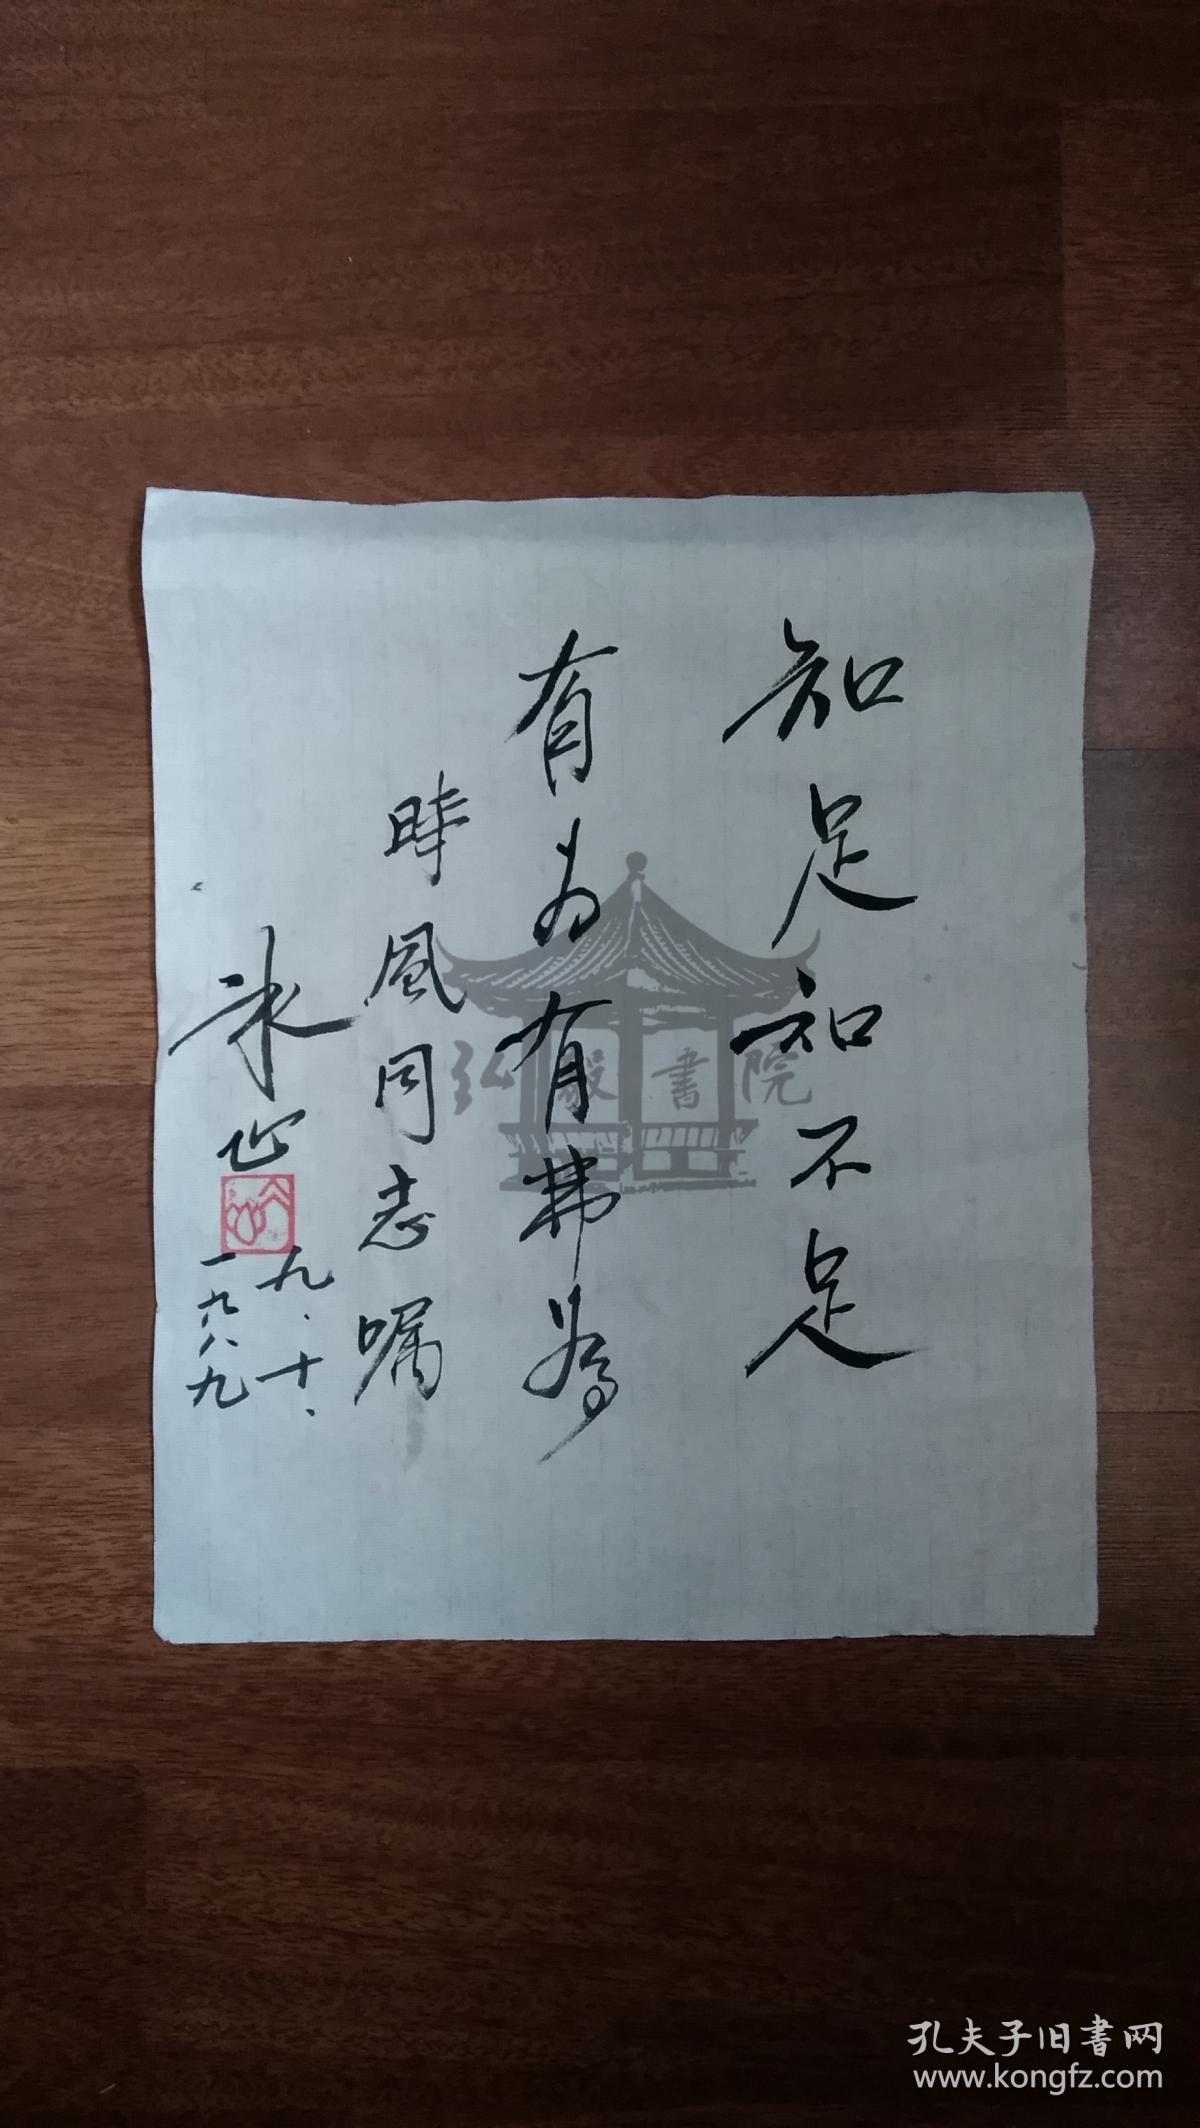 知足知不足
有为有弗為
時風同志嘱
冰心
九.十.
一九八九
弘毅書院
孔夫子旧書网
www.kongfz.com